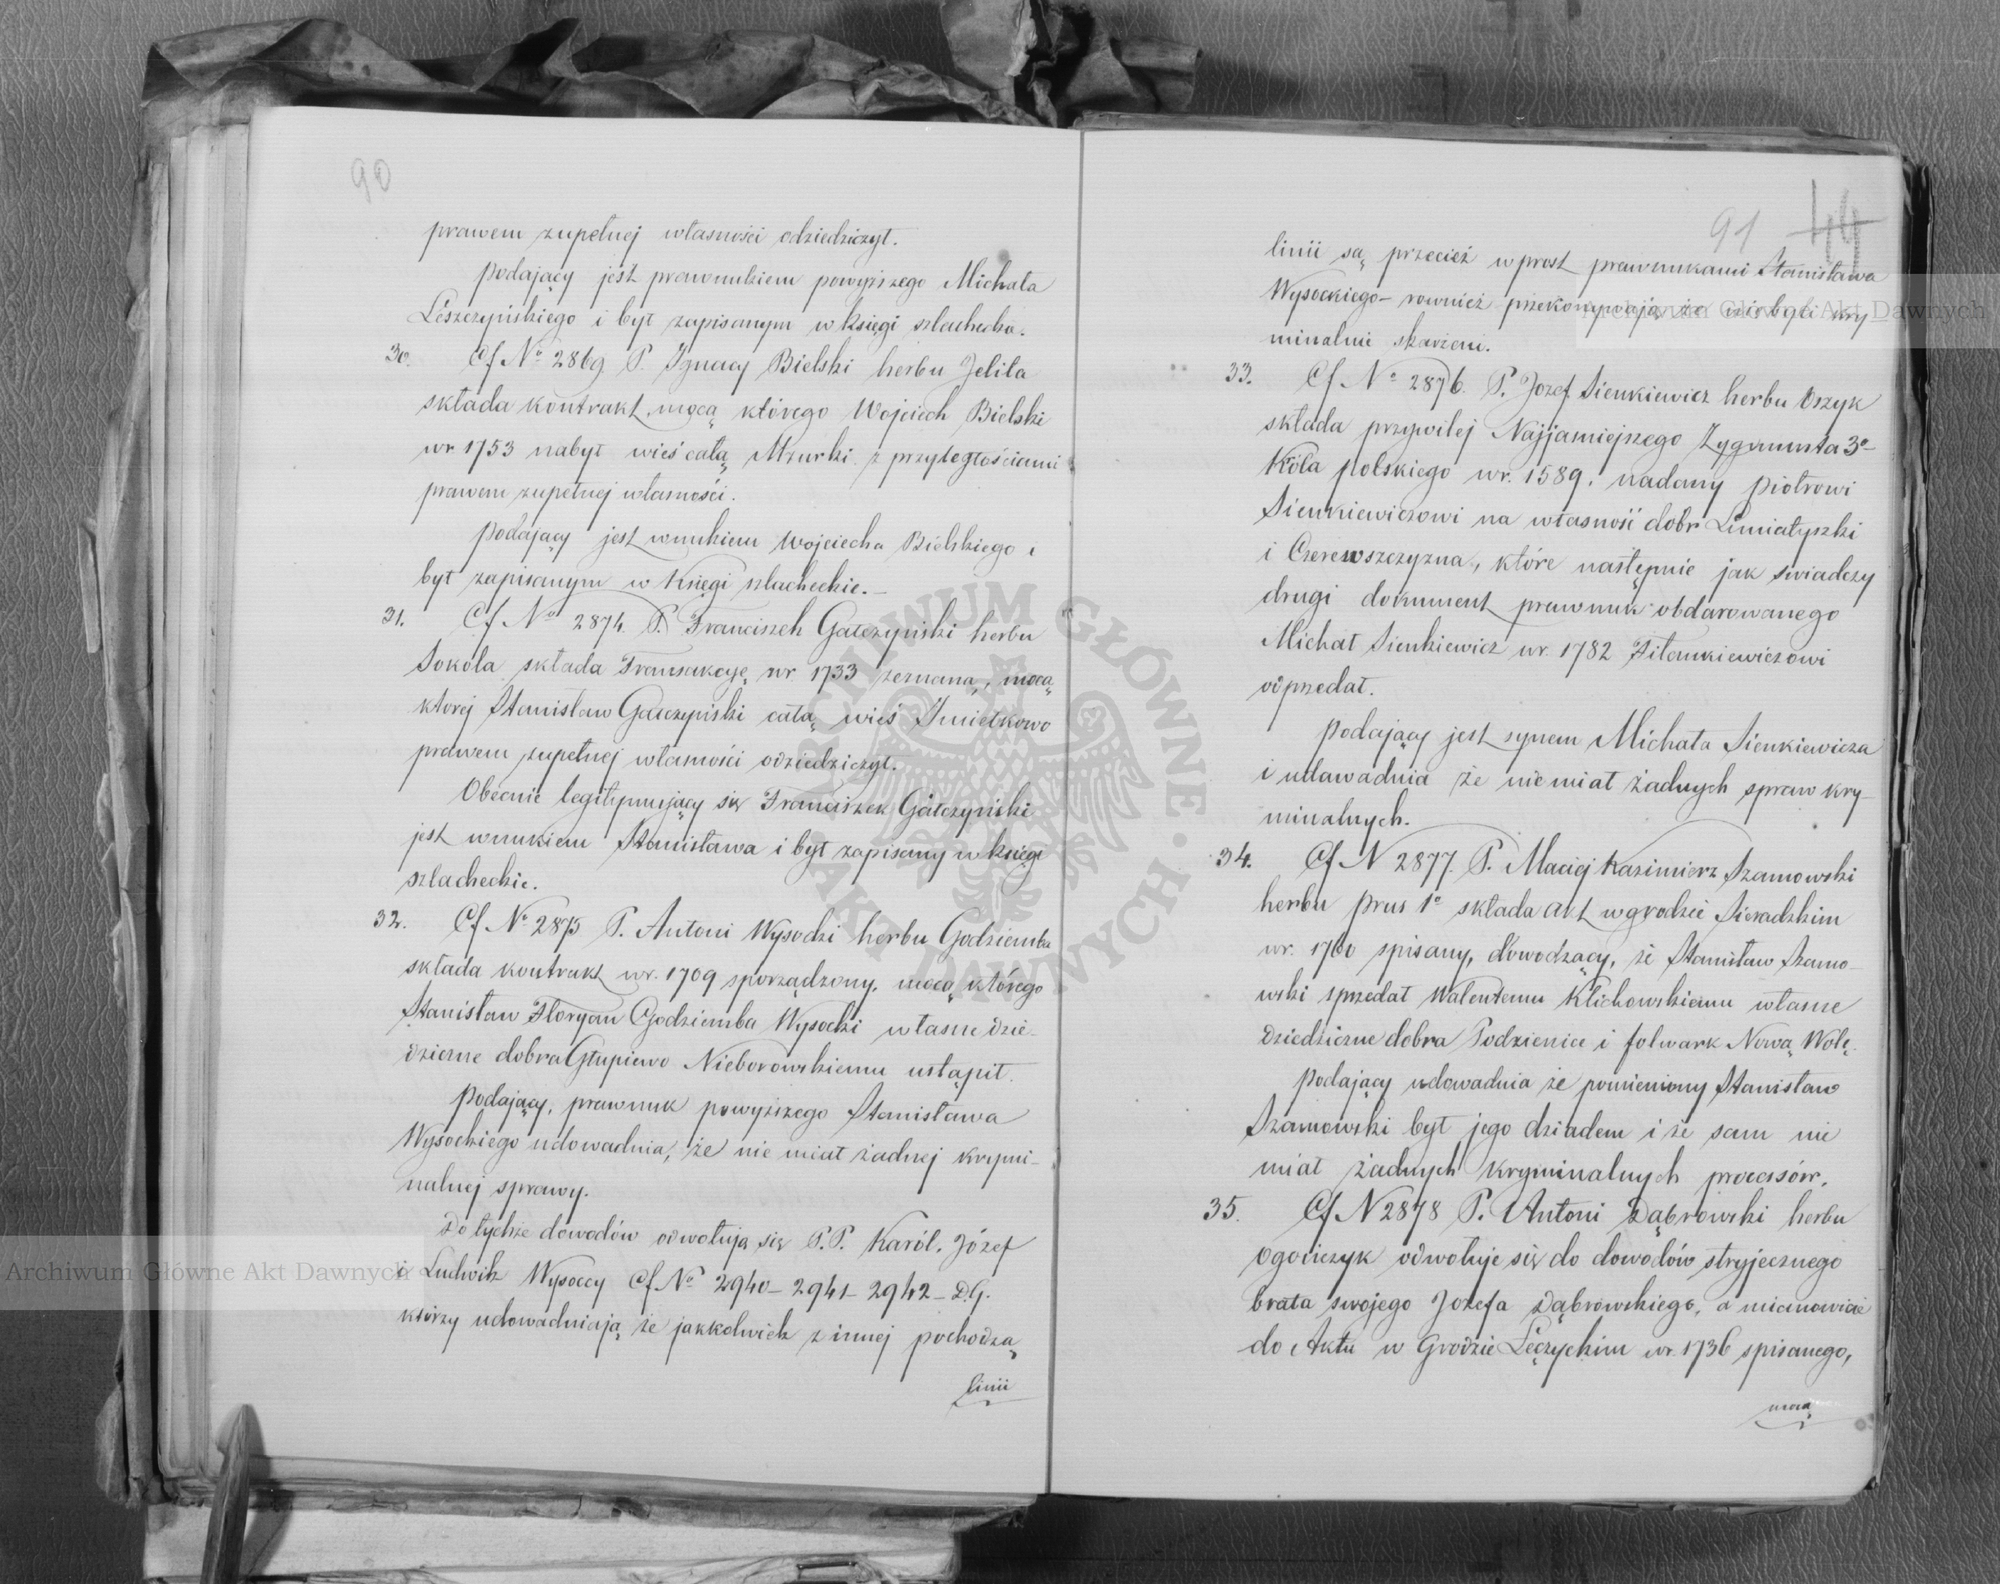 90
prawem zupełnej własności odziedziczył.
Podający jest prawnukiem powyższego Michała
Leszczyńskiego i był zapisanym w księgi szlachecka.
30. Cf No 2869 P. Ignacy Bielski herbu Jelita
składa kontrakt, mocą którego Wojciech Bielski
wr. 1753 nabył wieś całą Mrurki z przyległościami
prawem zupełnej własności.
Podający jest wnukiem Wojciecha Bielskiego i
był zapisanym w Księgi szlacheckie.—
31. Cf No 2874. P. Franciszek Gałczyński herbu
Sokola składa Transakcyę wr. 1733 zeznaną, mocą
której Stanisław Gałczyński całą wieś Imiełkowo
prawem zupełnej własności odziedziczył.
Obecnie legitymujący się Franciszek Gałczyński
jest wnukiem Stanisława i był zapisany w księgi
szlacheckie.
32. Cf No 2875 P. Antoni Wysocki herbu Godziemba
składa kontrakt wr. 1709 sporządzony, mocą którego
Stanisław Floryan Godziemba Wysocki własne dzie-
dziczne dobra Głupiewo Nieborowskiemu ustąpił.
Podający, prawnuk powyższego Stanisława
Wysockiego udowadnia, że nie miał żadnej krymi-
nalnej sprawy.
Do tychże dowodów odwołują się P.P. Karól, Józef
i Ludwik Wysoccy Cf No 2940 – 2941 – 2942 – D.G.
którzy udowadniają że jakkolwiek z innej pochodzą
linii
91 44
linii są przecież wprost prawnukami Stanisława
Wysockiego – rownież przekonywają, że niebyli kry
minalnie skarżeni.
33. Cf No 2876. P. Jozef Sienkiewicz herbu Oszyk
składa przywilej Najjaśniejszego Zygmunta 3o
Króla polskiego wr. 1589. nadany Piotrowi
Sienkiewiczowi na własność dobr Limiatyszki
i Czerewszczyzna, które następnie jak świadczy
drugi dokument prawnuk obdarowanego
Michał Sienkiewicz wr. 1782 Fitankiewiczowi
odprzedał.
Podający jest synem Michała Sienkiewicza
i udawadnia że nie miał żadnych spraw kry-
minalnych.
34. Cf N 2877. P. Maciej Kazimierz Szamowski
herbu prus 1o składa akt w grodzie Sieradzkim
wr. 1760 spisany, dowodzący, że Stanisław Szamo-
wski sprzedał Walentemu Klichowskiemu własne
Dziedziczne dobra Podzienice i folwark Nową Wolę.
Podający udowadnia że pomieniony Stanisław
Szamowski był jego dziadem i że sam nie
miał żadnych kryminalnych procesów.
35. Cf N 2878 P. Antoni Dąbrowski herbu
Ogończyk odwołuje się do dowodów stryjecznego
brata swojego Jozefa Dąbrowskiego, a mianowicie
do Aktu w Grodzie Łęczyckim wr. 1736 spisanego,
mocą
Archiwum Główne Akt Dawnych
Archiwum Główne Akt Dawnych
ARCHIWUM GŁÓWNE · AKT DAWNYCH ·